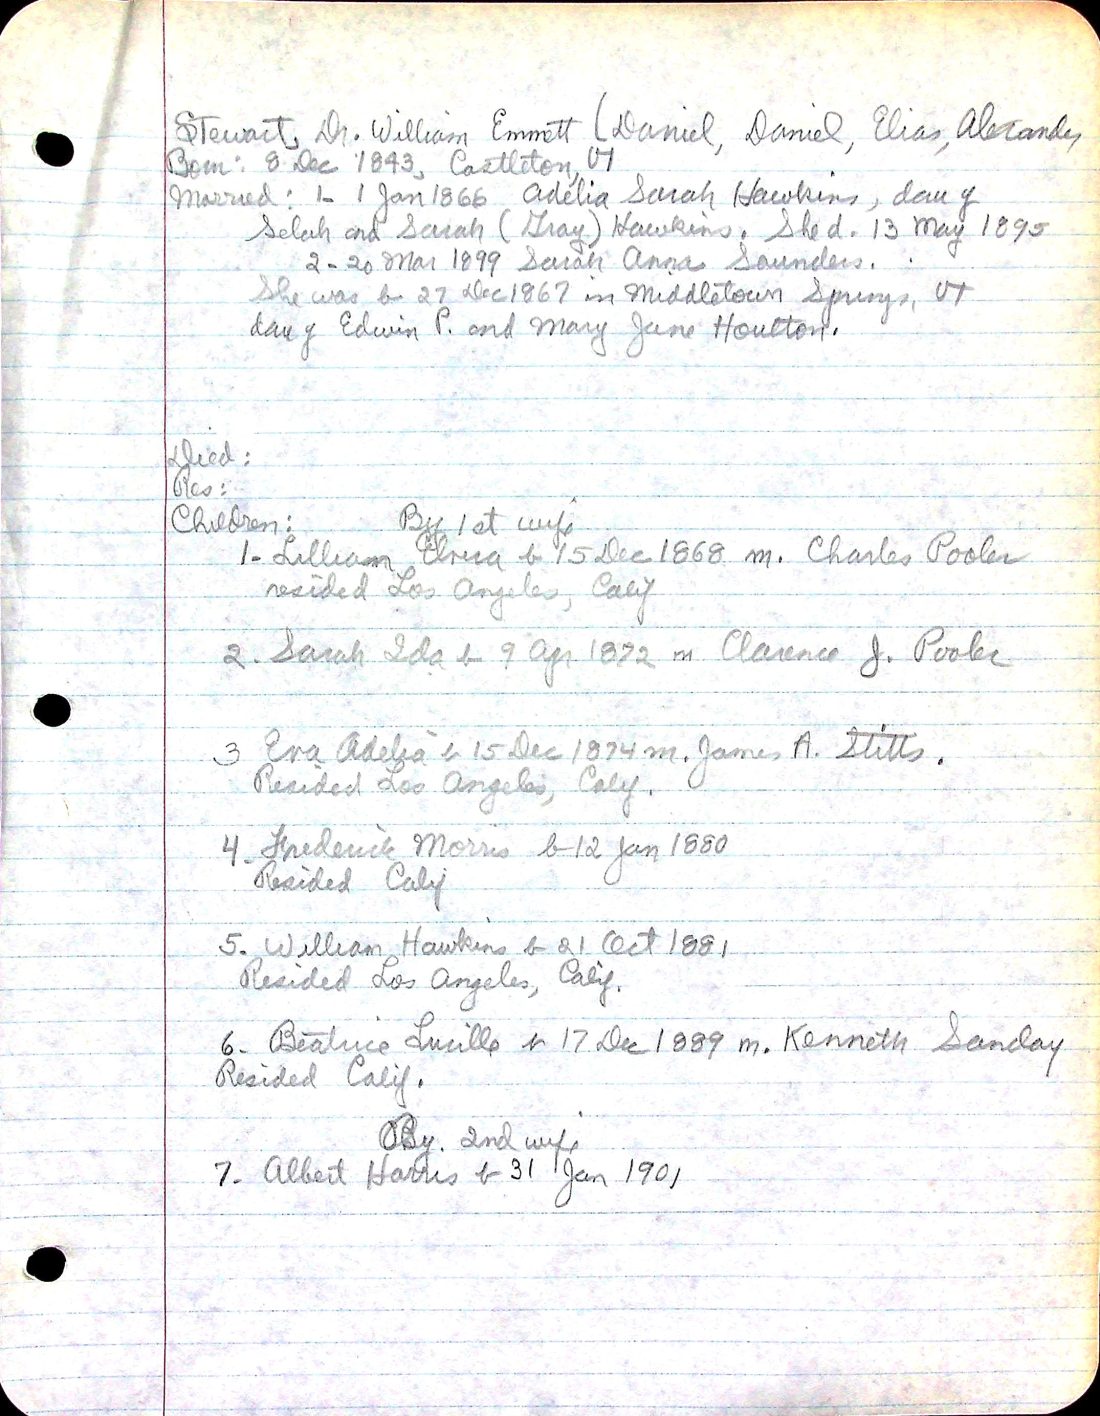 Stewart, Dr. William Emmett (Daniel, Daniel, Elias, Alexander
Born: 8 Dec 1843, Castleton, VT
Married: 1- 1 Jan 1866 Adelia Sarah Hawkins, dau of
Selah and Sarah (Gray) Hawkins. She d. 13 May 1895
2- 20 Mar 1899 Sarah Anna Saunders.
She was b 27 Dec 1867 in Middletown Springs, VT
dau of Edwin P. and Mary Jane Houlton.
Died:
Res:
Children: By 1st wife
1- Lilliam Elvira b 15 Dec 1868 m. Charles Pooler
resided Los Angeles, Calif
2. Sarah Ida b 9 Apr 1872 m Clarence J. Pooler
3 Eva Adelia b 15 Dec 1874 m. James A. Stitts.
Resided Los Angeles, Calif.
4. Frederick Morris b 12 Jan 1880
Resided Calif
5. William Hawkins b 21 Oct 1881
Resided Los Angeles, Calif.
6. Beatrice Lucille b 17 Dec 1889 m. Kenneth Sanday
Resided Calif.
By. 2nd wife
7. Albert Harris b 31 Jan 1901